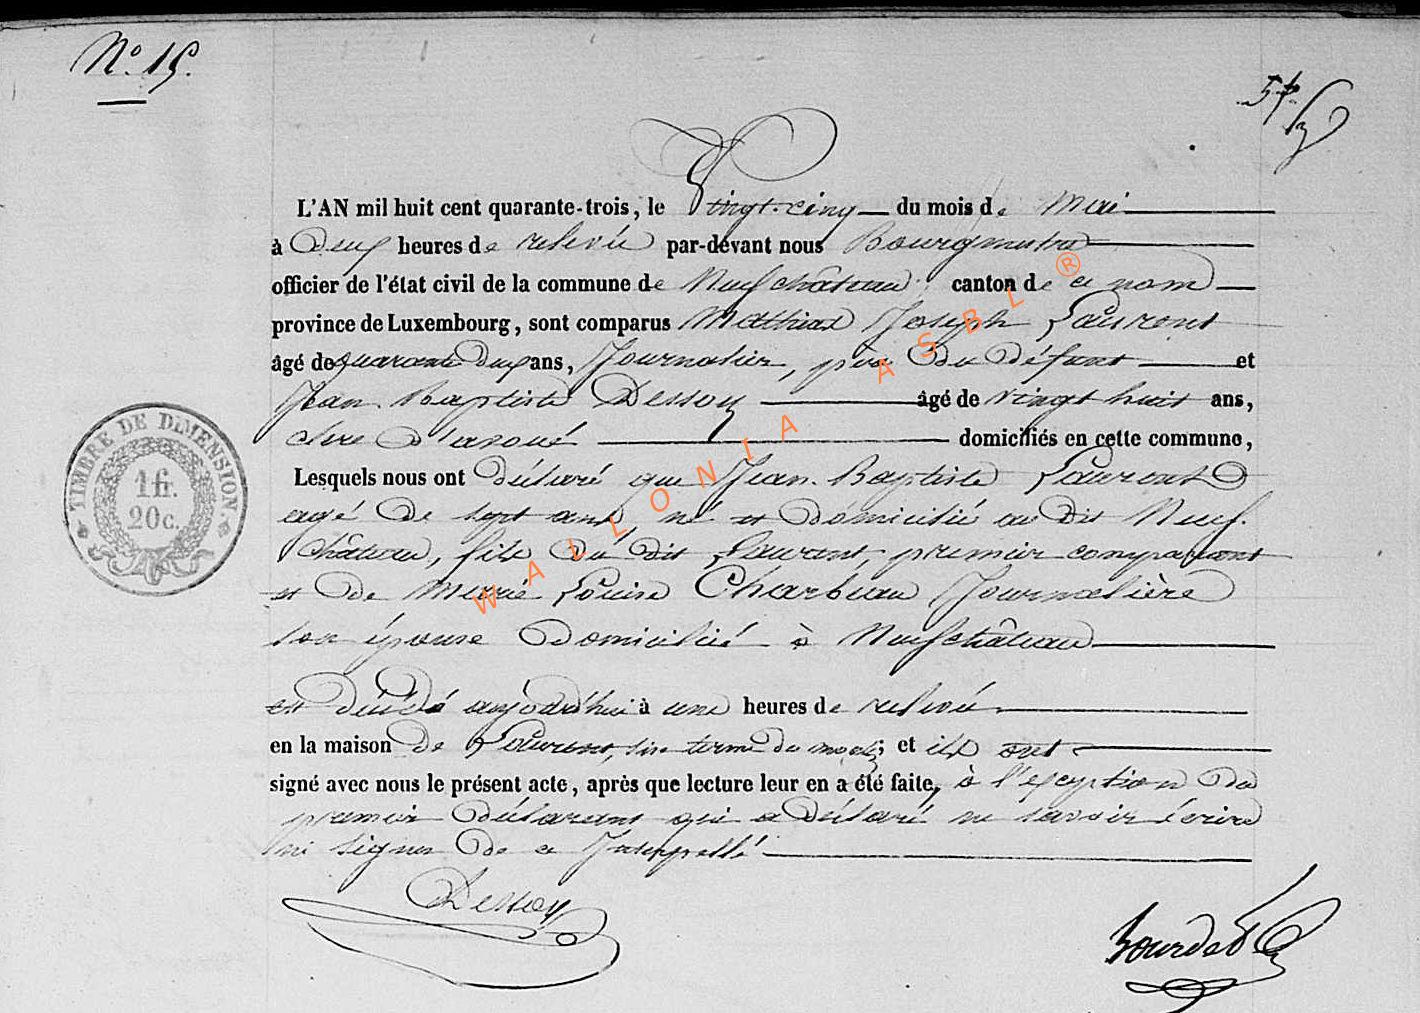 N.° 15.
L'AN mil huit cent quarante-trois, le Vingt-cinq du mois de Mai
à Deux heures de relevée par-devant nous Bourgmestre
officier de l'état civil de la commune de Neufchâteau canton de ce nom
province de Luxembourg, sont comparus Mathias Joseph Laurent
âgé de quarante Deux ans, Journalier, père du Défunt et
Jean Baptiste Dessoy âgé de vingt huit ans,
clerc d'avoué domiciliés en cette commune,
Lesquels nous ont déclaré que Jean Baptiste Laurent
agé de sept ans, né et domicilié au dit Neuf-
château, fils du dit Laurent, premier comparant
et de Marie Louise Charbeau Journalière
son épouse domicilié à Neufchâteau
est décédé aujourd'hui à une heures de relevée
en la maison de Laurent, ; et ils ont
signé avec nous le présent acte, après que lecture leur en a été faite, à l'exception du
premier déclarant qui a déclaré ne savoir écrire
ni signer de ce Interpellé
Dessoy
TIMBRE DE DIMENSION
1 fr.
20 c.
WALLONIA ASBL ®